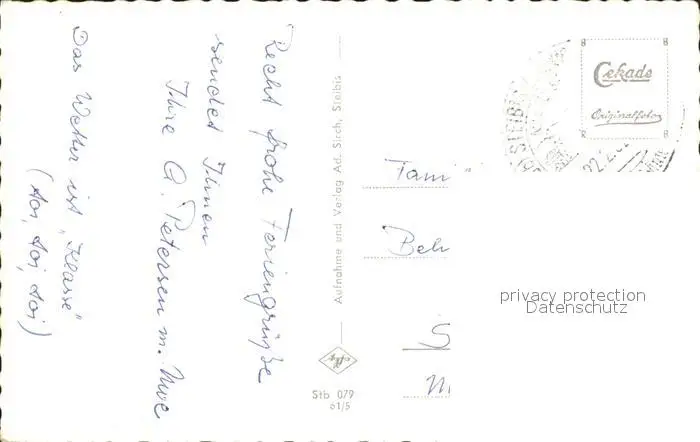 Recht frohe Feriengrüße
sendet Ihnen
Ihre A. Petersen m. Uwe
Das Wetter ist „Klasse"
(toi, toi, toi)
Aufnahme und Verlag Ad. Strch, Steibis
Stb 079
61/5
Cekade
Originalfoto
STEIBIS
22.2.62
Fam
Beh
S
privacy protection
Datenschutz